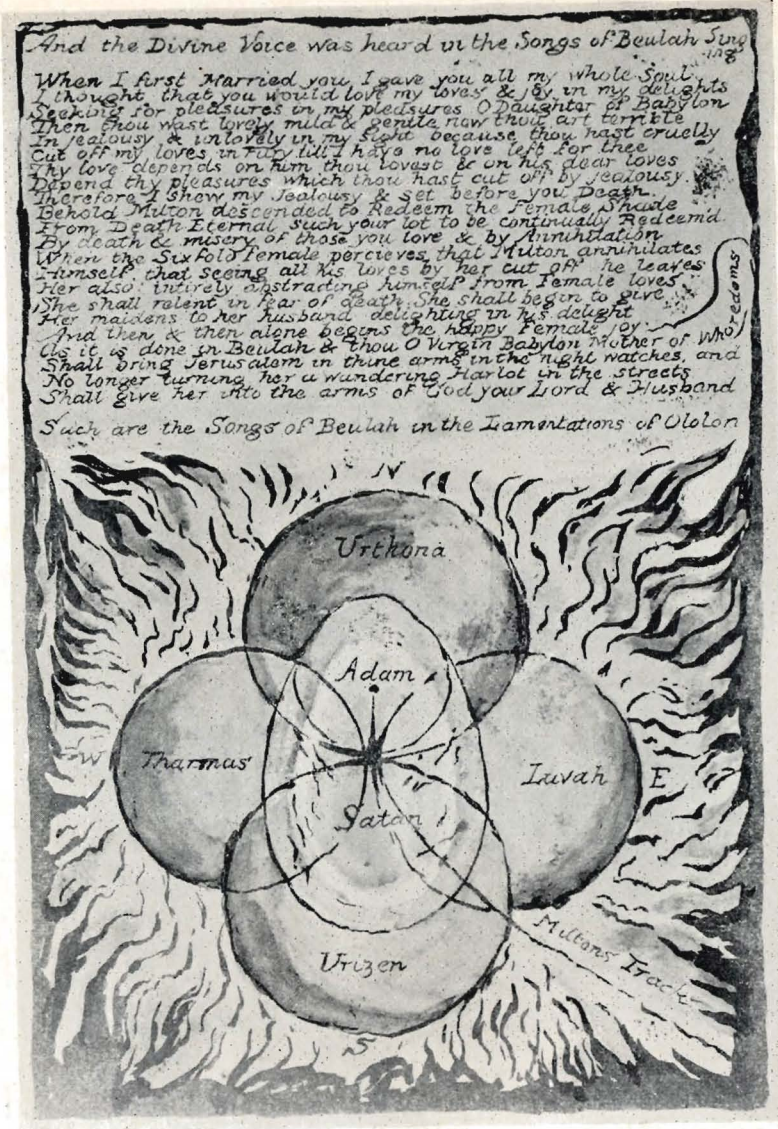 And the Divine Voice was heard in the Songs of Beulah Sing
ing
When I first Married you, I gave you all my whole Soul
I thought that you would love my loves & joy in my delights
Seeking for pleasures in my pleasures O Daughter of Babylon
Then thou wast lovely mild & gentle now thou art terrible
In jealousy & unlovely in my sight because thou hast cruelly
Cut off my loves in fury till I have no love left for thee
Thy love depends on him thou lovest & on his dear loves
Depend thy pleasures which thou hast cut off by jealousy.
Therefore I shew my Jealousy & set before you Death.
Behold Milton descended to Redeem the Female Shade
From Death Eternal such your lot to be continually Redeem'd
By death & misery of those you love & by Annihilation
When the Sixfold Female percieves, that Milton annihilates
Himself: that seeing all his loves by her cut off: he leaves
Her also: intirely abstracting himself from Female loves
She shall relent in fear of death: She shall begin to give
Her maidens to her husband delighting in his delight
And then & then alone begins the happy Female joy
As it is done in Beulah & thou O Virgin Babylon Mother of Who
redoms
Shall bring Jerusalem in thine arms in the night watches, and
No longer turning her a wandering Harlot in the streets
Shall give her into the arms of God your Lord & Husband
Such are the Songs of Beulah in the Lamentations of Ololon
N
Urthona
Adam
W
Tharmas
Luvah
E
Satan
Miltons Track
Urizen
S